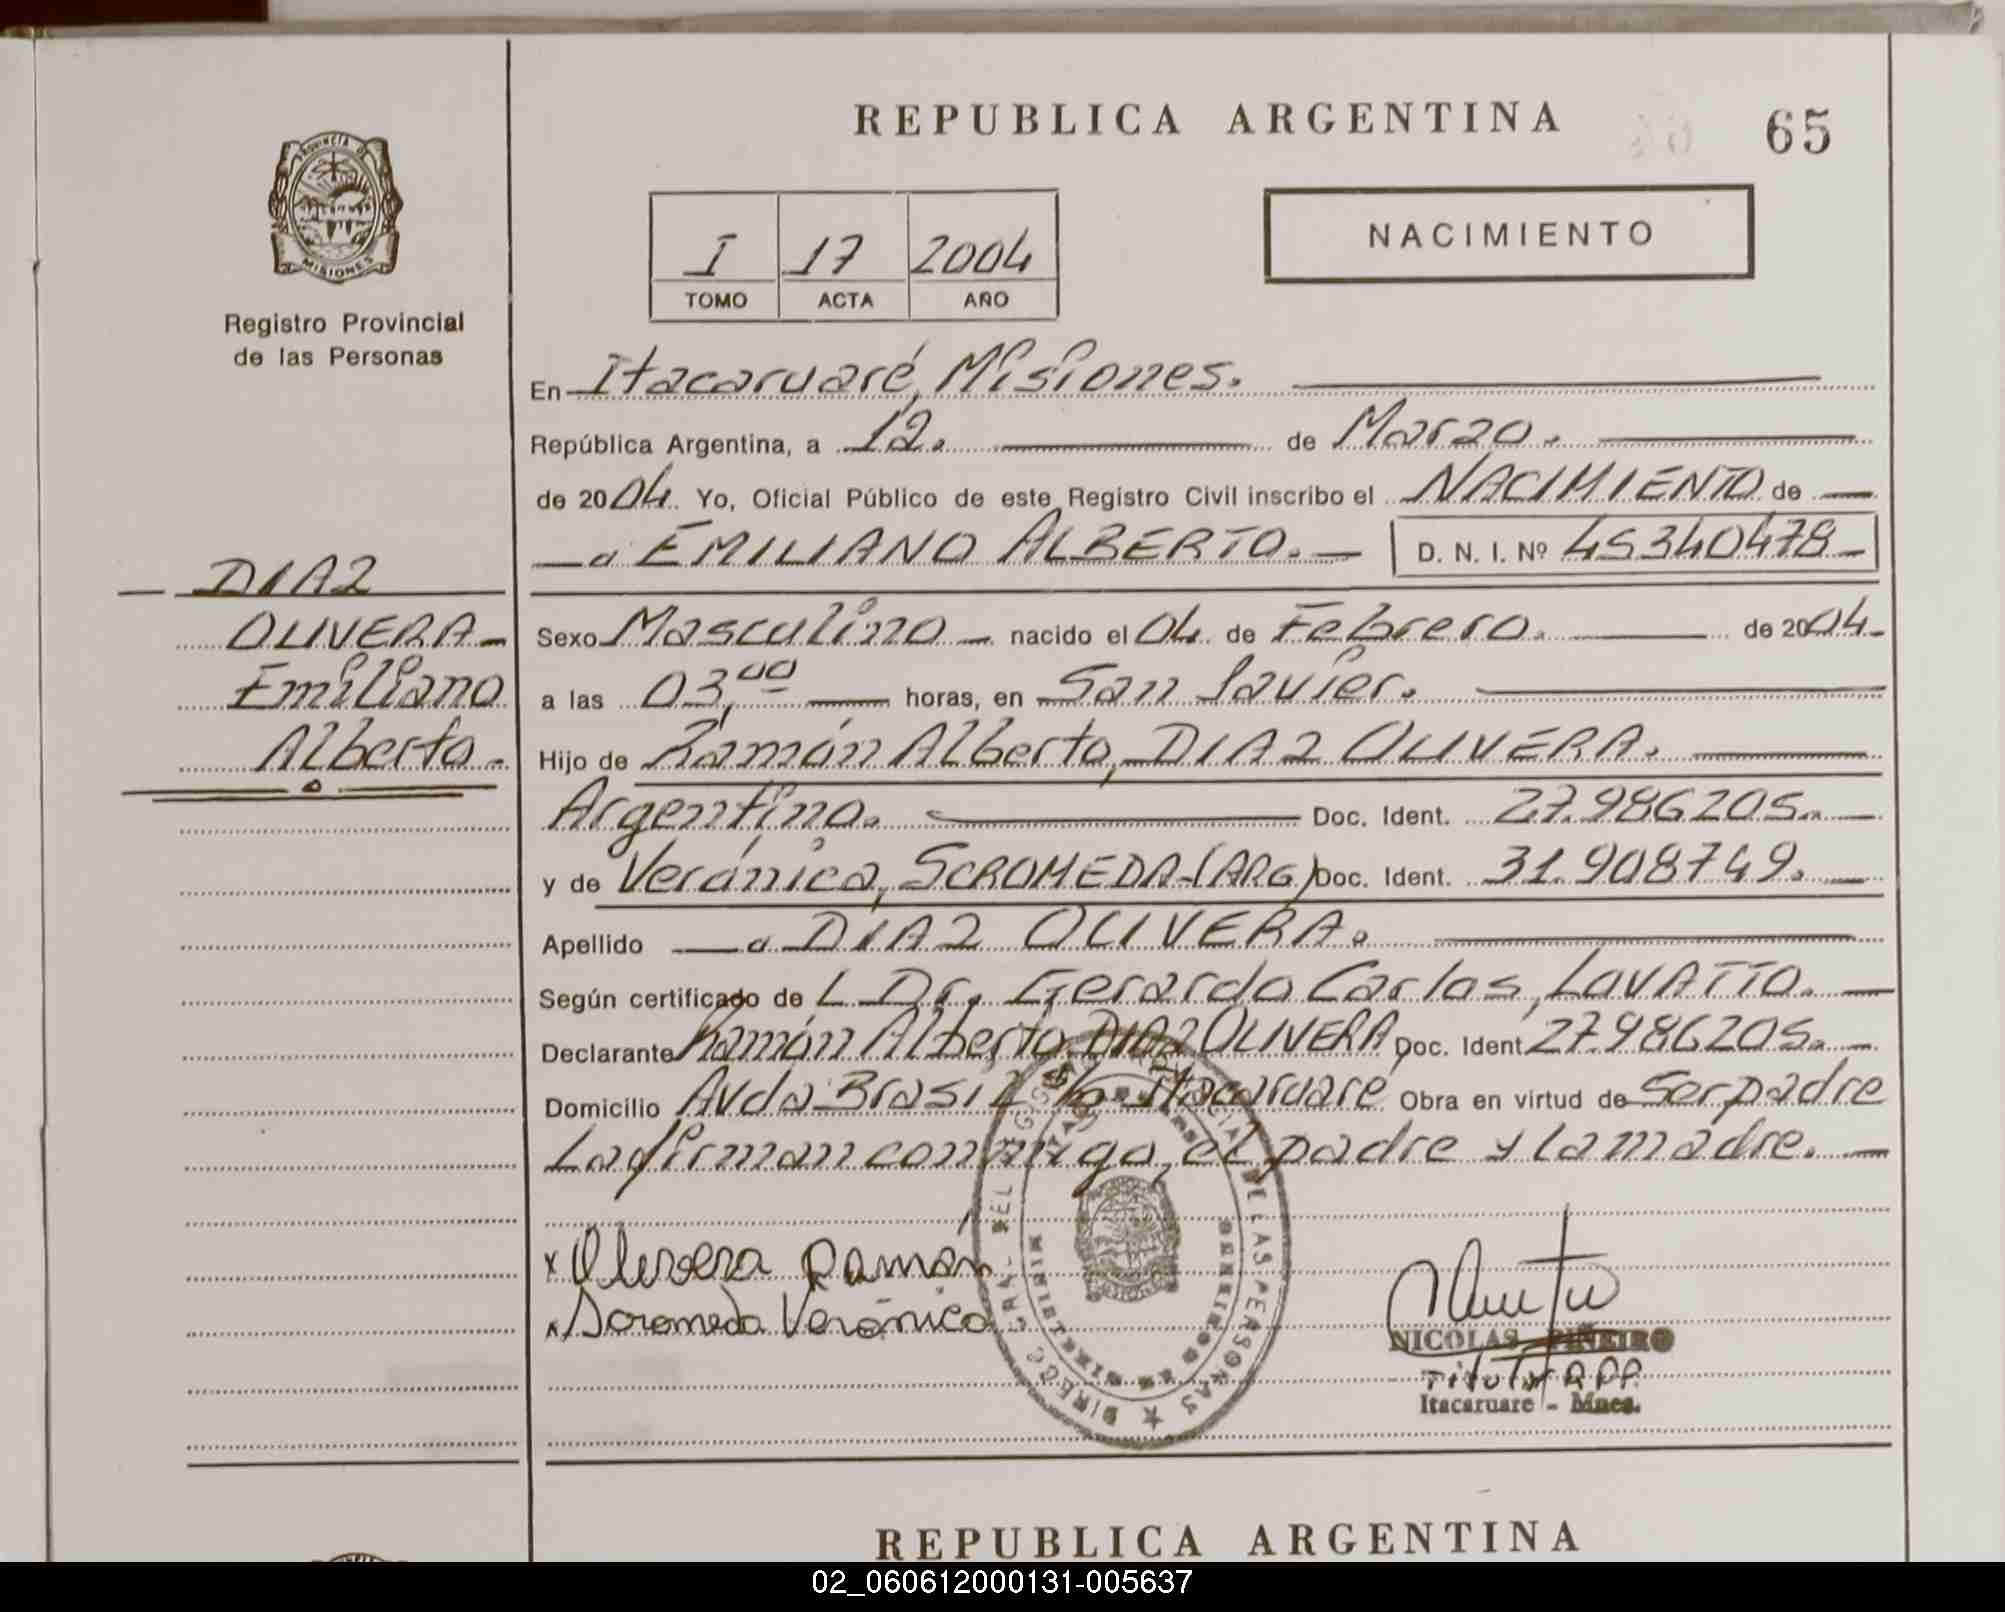 REPUBLICA ARGENTINA
65
PROVINCIA DE
MISIONES
Registro Provincial
de las Personas
I 17 2004
TOMO ACTA AÑO
NACIMIENTO
En Itacaruaré, Misiones.
República Argentina, a 12. de Marzo.
de 2004. Yo, Oficial Público de este Registro Civil inscribo el NACIMIENTO de
a EMILIANO ALBERTO. D. N. I. Nº 45340478
DIAZ
OLIVERA
Emiliano
Alberto.
Sexo Masculino nacido el 04 de Febrero. de 2004
a las 03,00 horas, en San Javier.
Hijo de Ramón Alberto, DIAZ OLIVERA.
Argentino. Doc. Ident. 27.986205.
y de Verónica, SCROMEDA-(ARG) Doc. Ident. 31.908749.
Apellido a DIAZ OLIVERA.
Según certificado de L Dr. Gerardo Carlos, LOVATTO.
Declarante Ramón Alberto DIAZ OLIVERA, Doc. Ident 27.986205.
Domicilio Avda Brasil Itacaruaré, Obra en virtud de ser padre
La firman conmigo, el padre y la madre.
x Olivera Ramón
x Soromeda Verónica
DIRECC. GRAL. DEL REGISTRO PROVINCIAL DE LAS PERSONAS
NICOLAS PIÑEIRO
Titular RPP
Itacaruare - Mnes.
REPUBLICA ARGENTINA
02_060612000131-005637